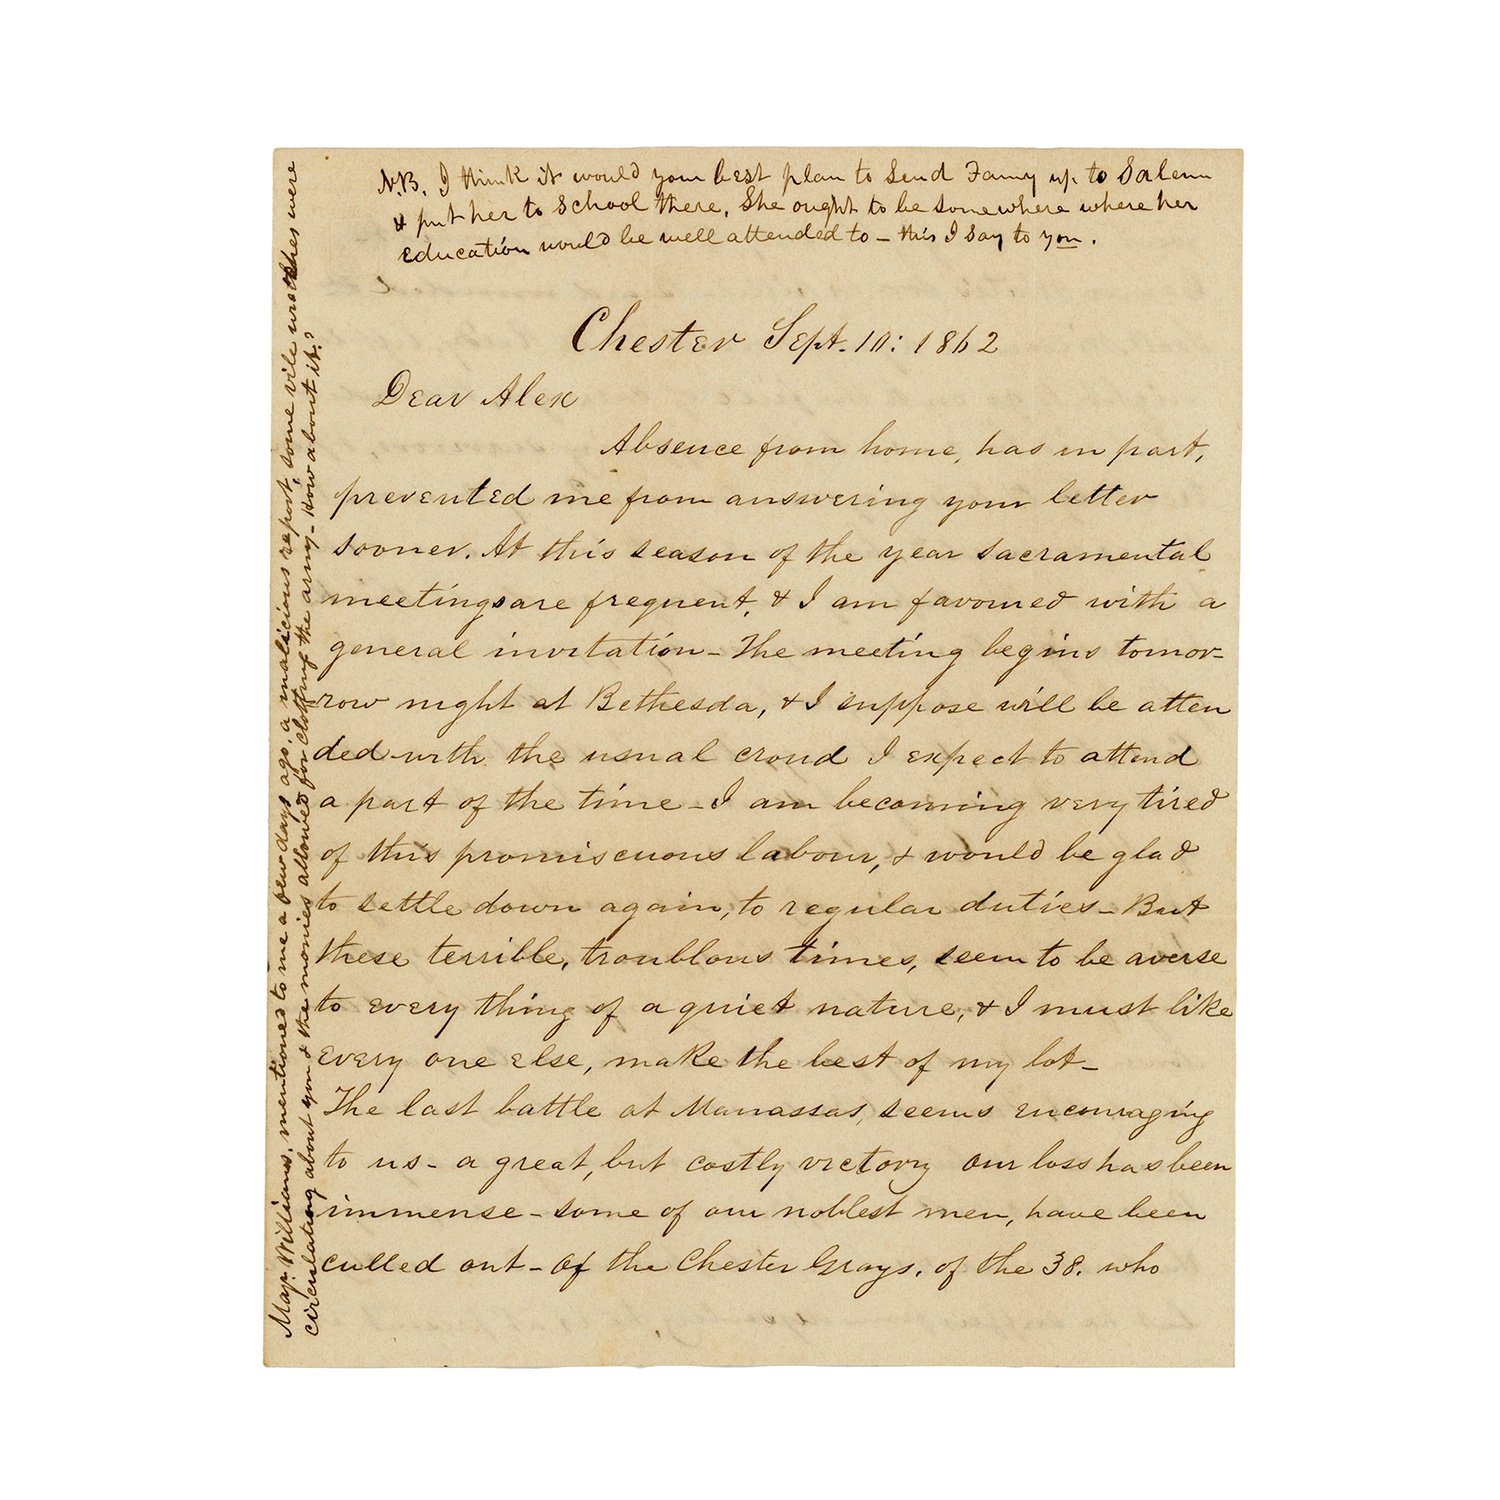 N.B. I think it would your best plan to send Fanny up to Salem
& put her to School there. She ought to be somewhere where her
education would be well attended to – this I say to you.
Chester Sept. 10: 1862
Dear Alex
Absence from home, has in part,
prevented me from answering your letter
sooner. At this season of the year sacramental
meetings are frequent, & I am favoured with a
general invitation – The meeting begins tomor-
row night at Bethesda, & I suppose will be atten
ded with the usual croud I expect to attend
a part of the time – I am becoming very tired
of this promiscuous labour, & would be glad
to settle down again, to regular duties – But
these terrible, troublous times, seem to be averse
to every thing of a quiet nature, & I must like
every one else, make the best of my lot –
The last battle at Manassas, seems encouraging
to us – a great, but costly victory our loss has been
immense – some of our noblest men, have been
culled out – Of the Chester Grays, of the 38. who
Maj: Williams, mentioned to me a few days ago, a malicious report, some vile wretches were
circulating about you & the monies allowed for clothing the army – How about it?